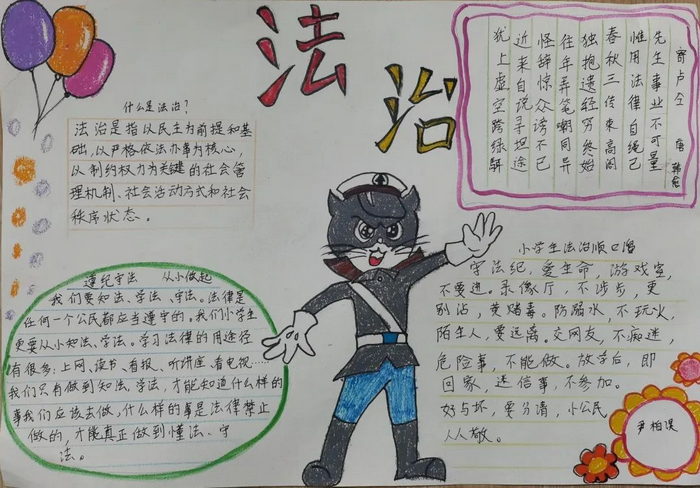 法治
什么是法治？
法治是指以民主为前提和基
础，以严格依法办事为核心，
以制约权力为关键的社会管
理机制、社会活动方式和社会
秩序状态。
寄卢仝 唐 韩愈
先生事业不可量
惟用法律自绳己
春秋三传束高阁
独抱遗经穷终始
往年弄笔嘲同异
怪辞惊众谤不已
近来自说寻坦途
犹上虚空跨绿駬
遵纪守法 从小做起
我们要知法、学法、守法。法律是
任何一个公民都应当遵守的。我们小学生
更要从小知法、学法。学习法律的用途径
有很多：上网、读书、看报、听讲座、看电视……
我们只有做到知法、学法，才能知道什么样的
事我们应该去做，什么样的事是法律禁止
做的，才能真正做到懂法、守
法。
小学生法治顺口溜
守法纪，爱生命，游戏室，
不要进。录像厅，不涉步，更
别沾，黄赌毒。防溺水，不玩火，
陌生人，要远离。交网友，不痴迷，
危险事，不能做。放学后，即
回家，迷信事，不参加。
好与坏，要分清，小公民
人人敬。
尹相